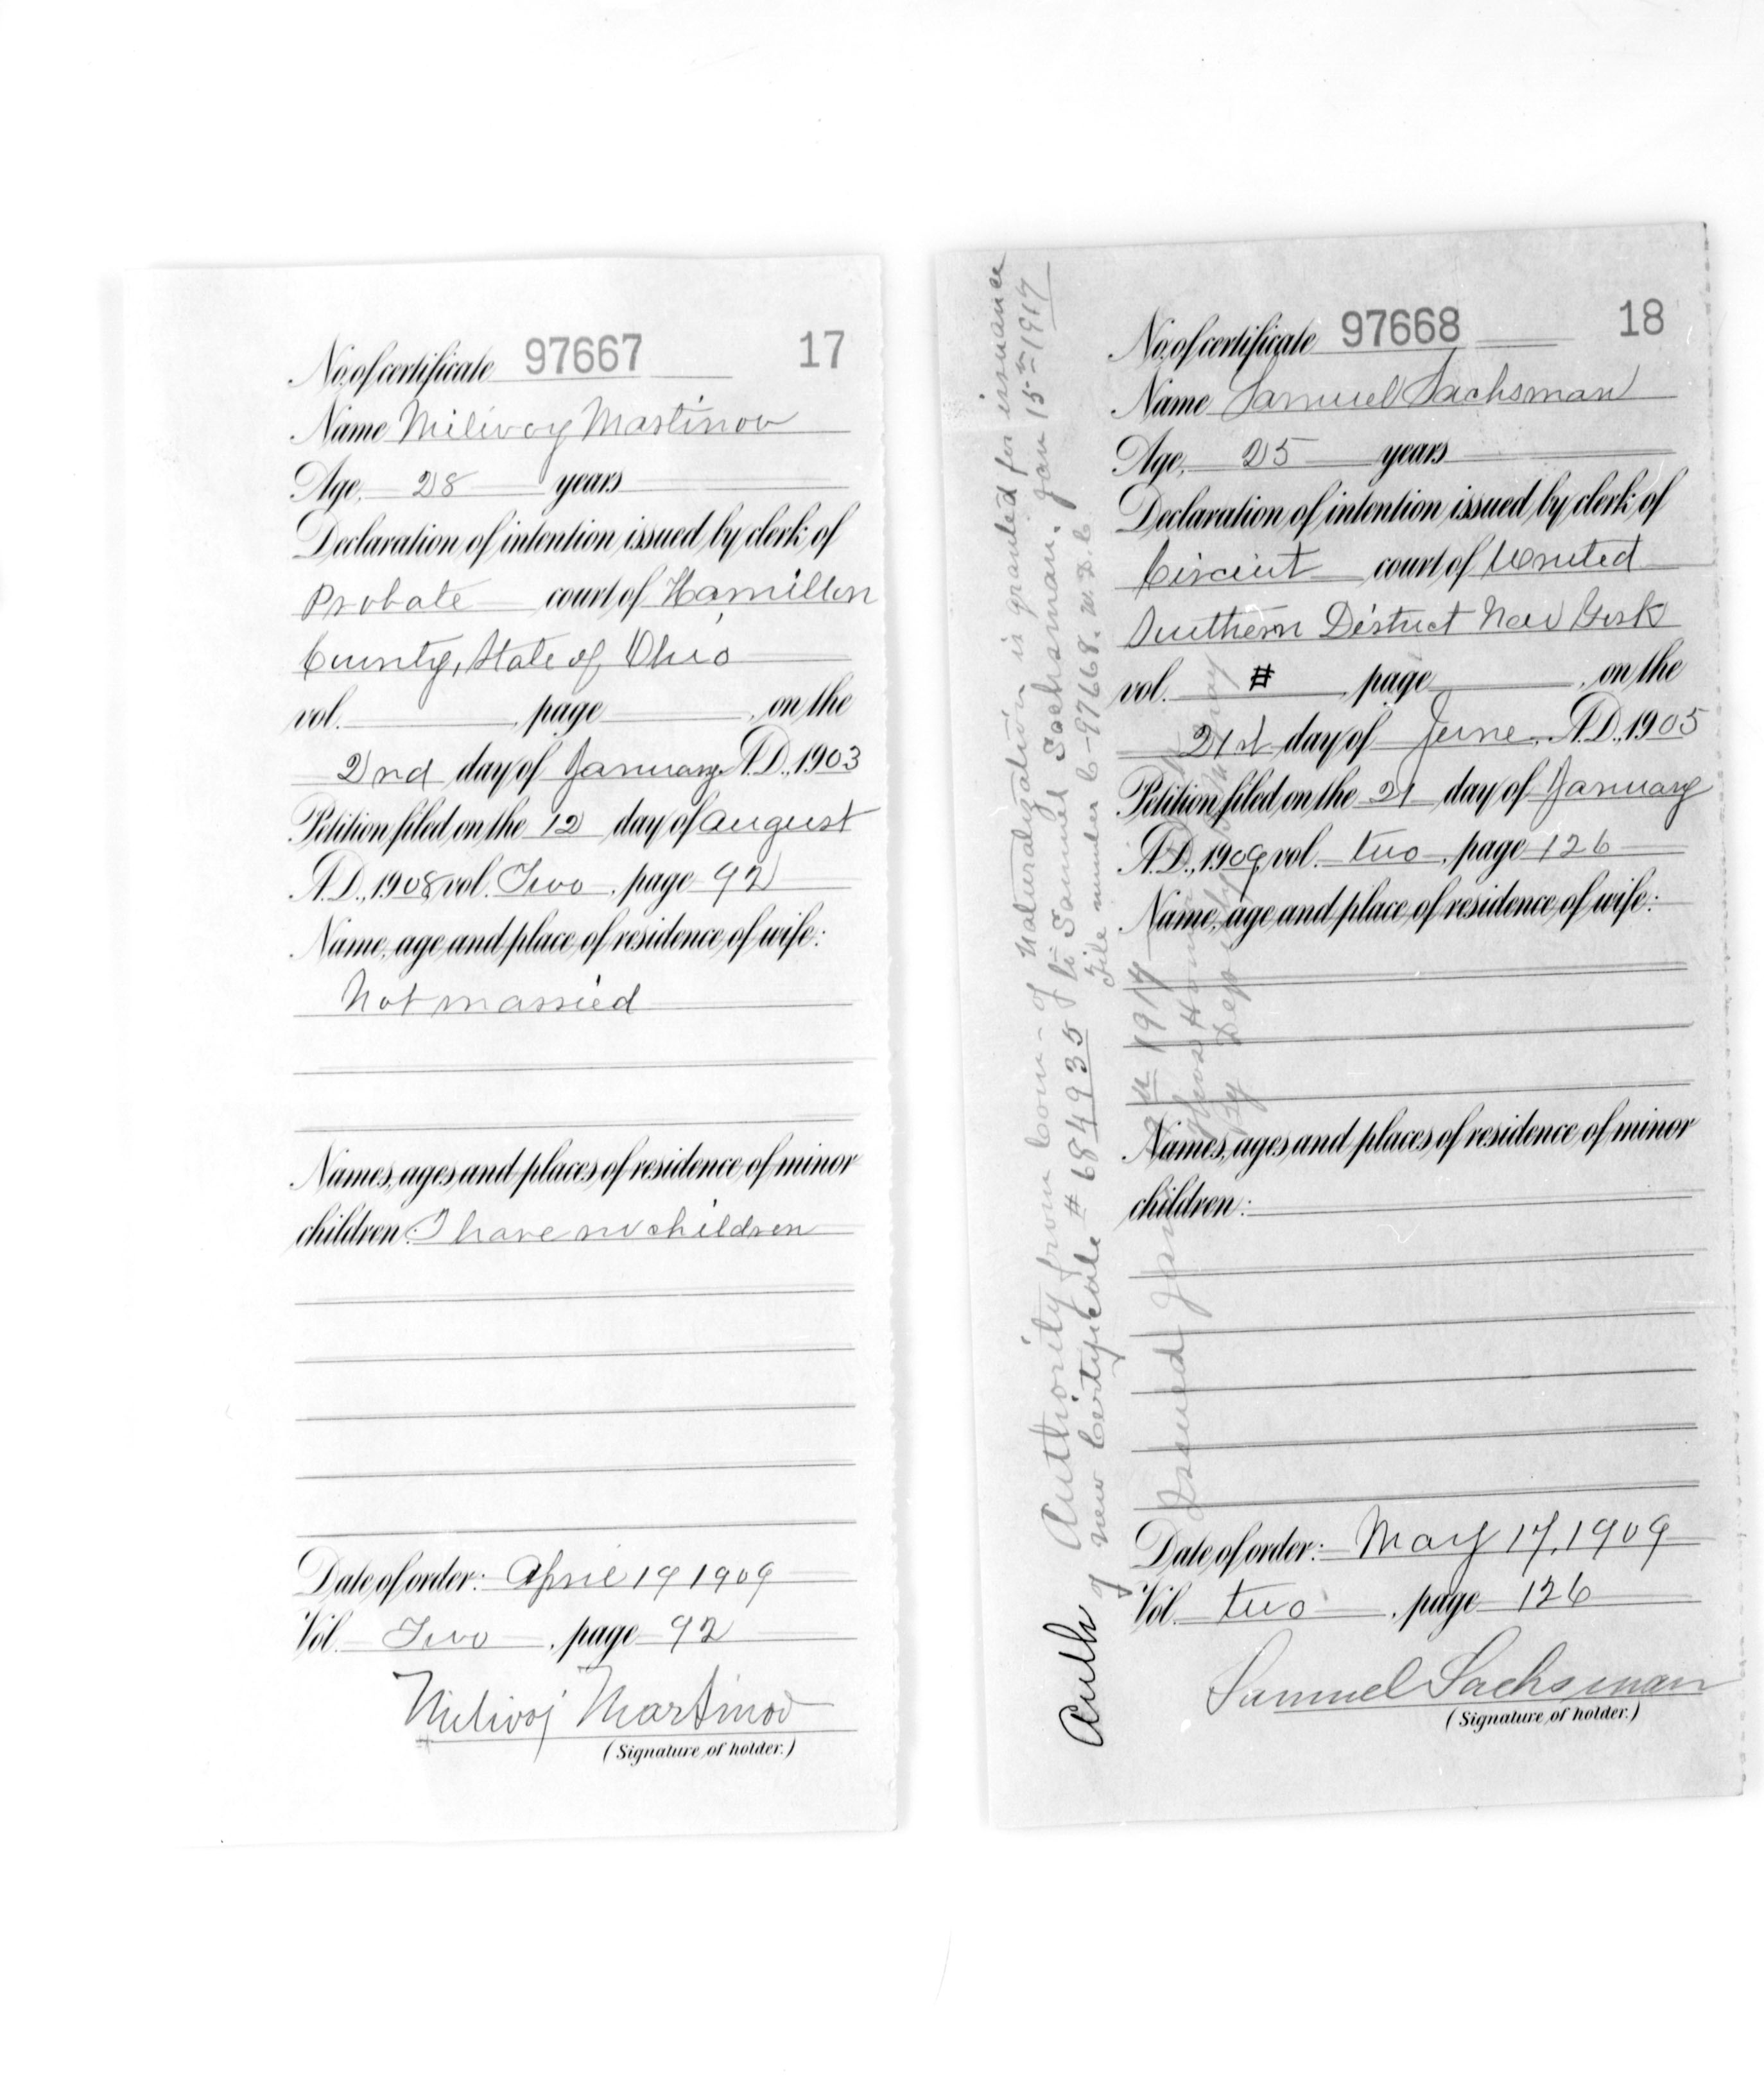 No. of certificate 97667 17
Name Milivoy Martinov
Age, 28 years
Declaration of intention issued by clerk of
Probate court of Hamilton
County, State of Ohio
vol. , page , on the
2nd day of January A.D., 1903
Petition filed on the 12 day of August
A.D., 1908 vol. Two, page 92
Name, age and place of residence of wife:
Not married
Names, ages and places of residence of minor
children: I have no children
Date of order: April 19 1909
Vol. Two, page 92
Milivoj Martinov
(Signature of holder.)
No. of certificate 97668 18
Name Samuel Sachsman
Age, 25 years
Declaration of intention issued by clerk of
Circuit court of United
Southern District New York
vol. # , page , on the
21st day of June, A.D., 1905
Petition filed on the 21 day of January
A.D., 1909, vol. two, page 126
Name, age and place of residence of wife:
Names, ages and places of residence of minor
children:
Date of order: May 17, 1909
Vol. two, page 126
Samuel Sachsman
(Signature of holder.)
Auth
Authority from Com- of Naturalization is granted for issuance
of new Certificate # 684935 to Samuel Sachsman. Jan 15th 1917
File number C-97668.
Issued Jan 1917
By Deputy